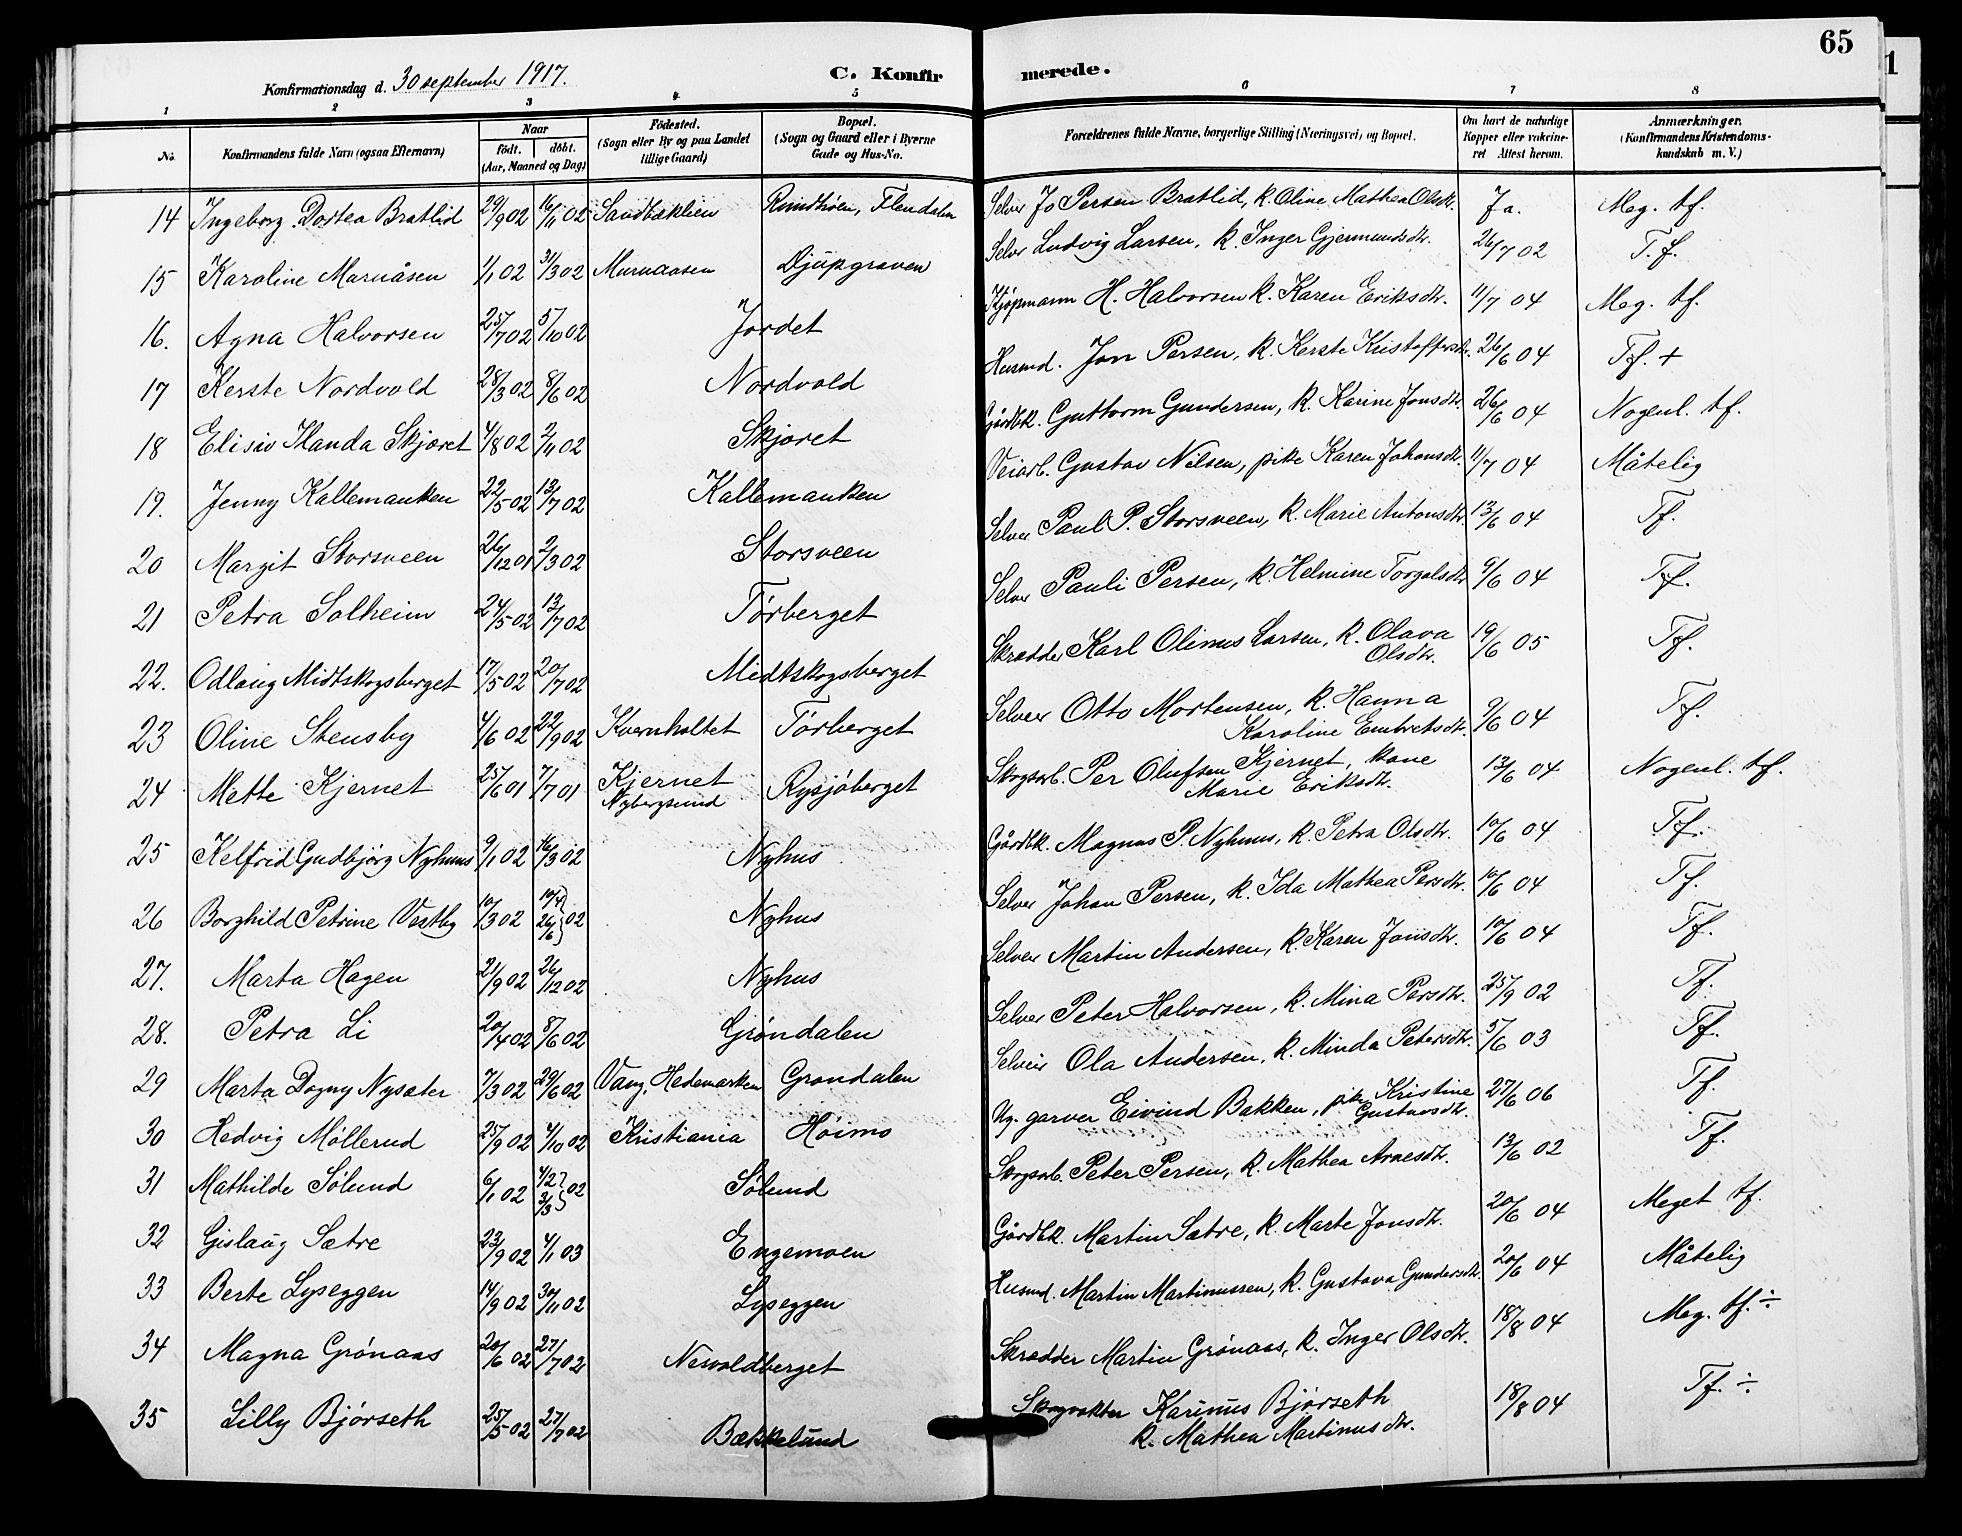 65
Konfirmationsdag d. 30 september 1917.
C. Konfirmerede.
1 2 3 4 5 6 7 8
No.
Konfirmandens fulde Navn (ogsaa Efternavn)
Naar
födt. döbt.
(Aar, Maaned og Dag)
Födested.
(Sogn eller By og paa Landet
tillige Gaard)
Bopæl.
(Sogn og Gaard eller i Byerne
Gade og Hus-No.
Forældrenes fulde Navne, borgerlige Stilling (Næringsvei) og Bopæl.
Om havt de naturlige
Kopper eller vakcine-
ret Attest herom.
Anmærkninger.
(Konfirmandens Kristendoms-
kundskab m. V.)
14 Ingeborg Dortea Bratlid 29/9 02 16/11 02 Sandbæklien Rundhöen, Flendalen Selver Jo Persen Bratlid, k. Oline Mathea Olsdt. Ja. Meg. tf.
15 Karoline Murnåsen 1/1 02 31/3 02 Murnaasen Djupgraven Selver Ludvig Larsen, k. Inger Gjermundsdtr. 26/7 02 T. f.
16. Agna Halvorsen 25/7 02 5/10 02 Jordet Kjöpmann H. Halvorsen k. Karen Eriksdtr. 11/7 04 Meg. tf.
17 Kerste Nordvold 28/3 02 8/6 02 Nordvold Husmd. Jon Persen, k. Kerste Kristoffersdtr. 26/6 04 Tf. +
18 Elisiv Skjæret 4/8 02 2/11 02 Skjæret Gårdbk. Guttorm Gundersen, k. Karine Jonsdtr. 26/6 04 Nogenl. tf.
19. Jenny Kallemanken 22/5 02 13/7 02 Kallemanken Veiarb. Gustav Nilsen, pike Karen Johansdtr. 11/7 04 Måtelig
20 Margit Storsveen 26/12 01 2/3 02 Storsveen Selver Paul P. Storsveen, k. Marie Antonsdtr. 13/6 04 Tf.
21 Petra Solheim 24/5 02 13/7 02 Törberget Selver Pauli Persen, k. Helmine Torgalsdtr. 9/6 04 Tf.
22. Odlaug Midtskogsberget 17/5 02 20/7 02 Midtskogsberget Skrædder Karl Olinus Larsen, k. Olava
Olsdtr. 19/6 05 Tf.
23 Oline Stensby 4/6 02 22/9 02 Kvernholtet Törberget Selver Otto Mortensen, k. Hanna
Karoline Embretsdtr. 9/6 04 Tf.
24 Mette Kjernet 25/6 01 7/7 01 Kjernet
Nybergsund Rysjöberget Skogsarb. Per Olufsen Kjernet, kone
Marie Eriksdtr. 13/6 04 Nogenl. tf.
25 Kelfrid Gudbjörg Nyhus 9/1 02 16/3 02 Nyhus Gårdbk. Magnus P. Nyhuus, k. Petra Olsdtr. 10/6 04 Tf.
26 Borghild Petrine Vestby 10/3 02 26/6 02 Nyhus Selver Johan Persen, k. Ida Mathea Persdtr. 10/6 04 Tf.
27. Marta Hagen 21/9 02 26/12 02 Nyhus Selver Martin Andersen, k. Karen Jonsdtr. 10/6 04 Tf.
28. Petra Li 20/4 02 8/6 02 Gröndalen Selver Peter Halvorsen, k. Mina Persdtr. 25/9 02 Tf.
29 Marta Dagny Nysæter 7/3 02 29/6 02 Vang, Hedemarken Grøndalen Selveir Ola Andersen, k. Minda Petersdtr. 5/6 03 Tf.
30 Hedvig Möllerud 25/9 02 4/10 02 Kristiania Höimo Ug. garver Eivind Bakken, pike Kristine
Gustavsdtr. 27/6 06 Tf.
31 Mathilde Sölund 6/1 02 4/2 3/3 02 Sölund Skogsarb. Peter Persen, k. Mathea Arnesdtr. 13/6 02 Tf.
32 Gislaug Sætre 23/9 02 4/1 03 Engemoen Gårdbk. Martin Sætre, k. Marte Jonsdtr. 20/6 04 Meget tf.
33 Berte Lyseggen 14/9 02 30/11 02 Lyseggen Husmd. Martin Martinussen, k. Gustava Gundersdtr. 20/6 04 Måtelig
34 Magna Grönaas 20/6 02 27/7 02 Nesvoldberget Skrædder Martin Grönaas, k. Inger Olsdtr. 18/8 04 Meg. tf. ÷
35 Lilly Björseth 25/5 02 27/7 02 Bækkelund Skogvokter Karinus Björseth
k. Mathea Martinusdtr. 18/8 04 Tf. ÷